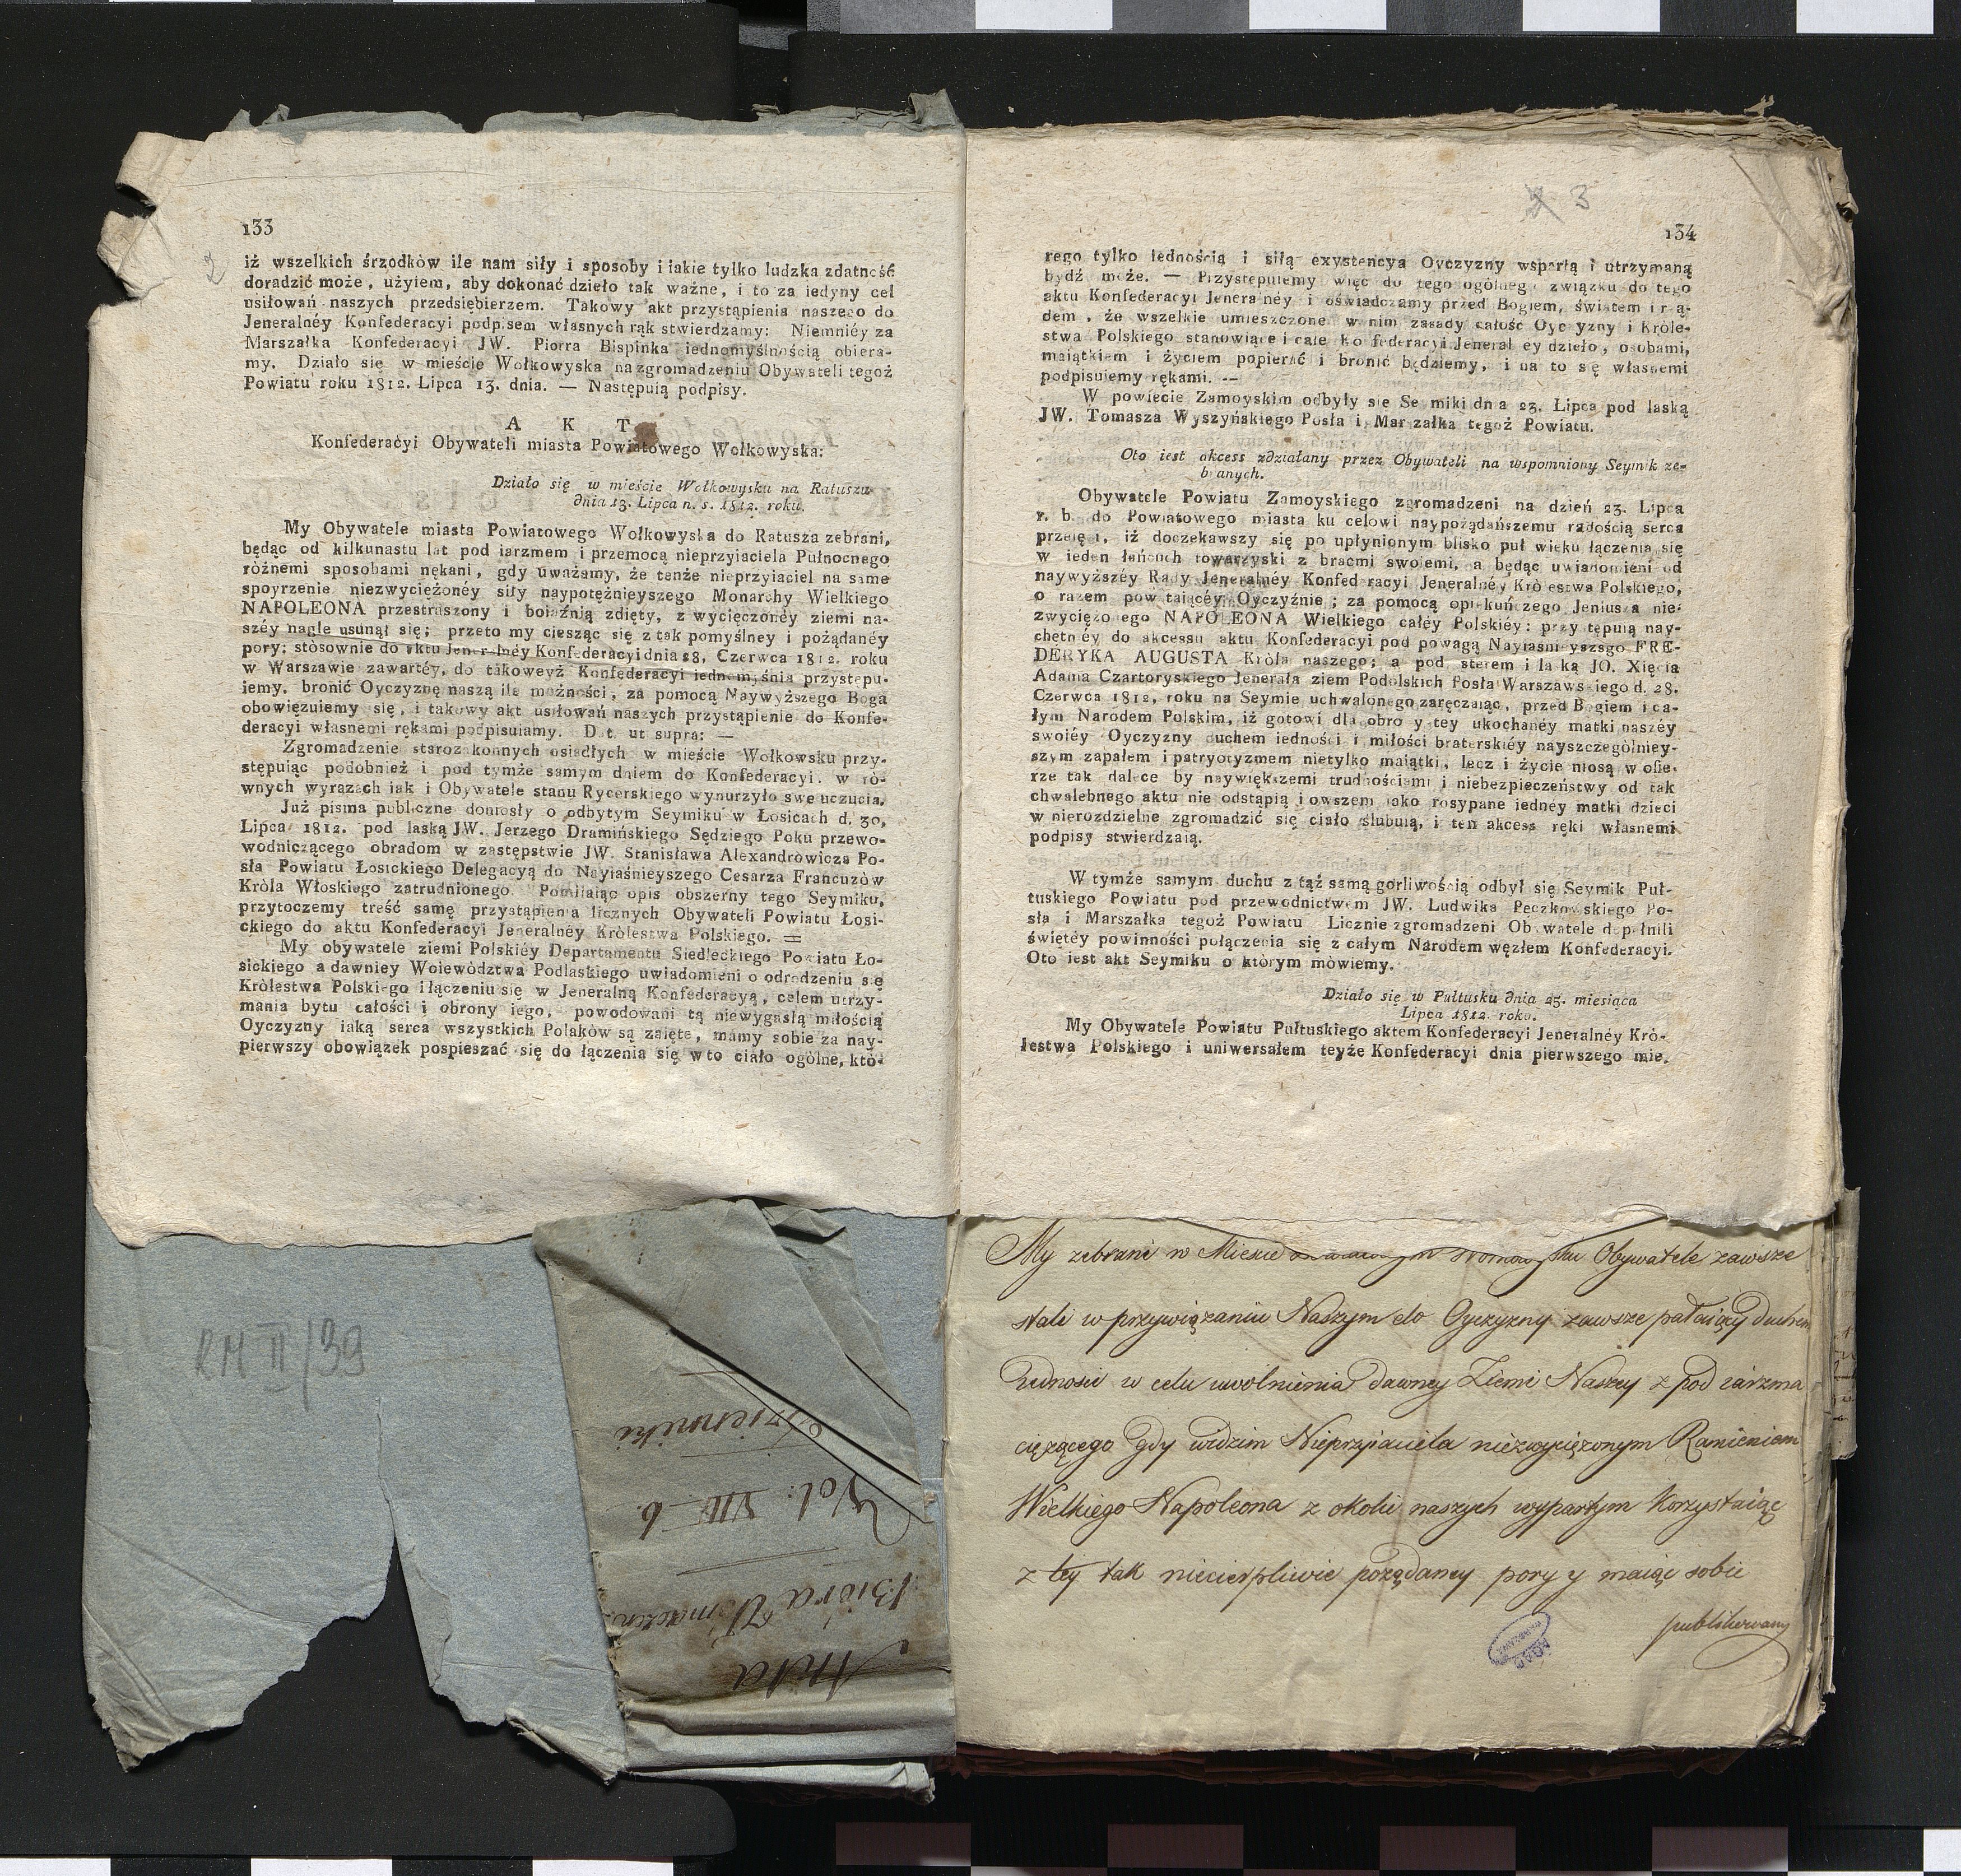 133
2
iż wszelkich śrzodków ile nam siły i sposoby i iakie tylko ludzka zdatność
doradzić może, użyiem, aby dokonać dzieło tak ważne, i to za iedyny cel
usiłowań naszych przedsiębierzem. Takowy akt przystąpienia naszego do
Jeneralnéy Konfederacyi podpisem własnych rąk stwierdzamy: Niemniéy za
Marszałka Konfederacyi JW. Piotra Bispinka iednomyślnością obiera-
my. Działo się w mieście Wołkowyska na zgromadzeniu Obywateli tegoż
Powiatu roku 1812. Lipca 13. dnia. — Następuią podpisy.
A K T
Konfederacyi Obywateli miasta Powiatowego Wołkowyska:
Działo się w mieście Wołkowysku na Ratuszu
dnia 13. Lipca n. s. 1812. roku.
My Obywatele miasta Powiatowego Wołkowyska do Ratusza zebrani,
będąc od kilkunastu lat pod iarzmem i przemocą nieprzyiaciela Pułnocnego
różnemi sposobami nękani, gdy uważamy, że tenże nieprzyiaciel na same
spoyrzenie niezwyciężonéy siły naypotężnieyszego Monarchy Wielkiego
NAPOLEONA przestraszony i boiaźnią zdięty, z wycięczonéy ziemi na-
széy nagle usunął się; przeto my ciesząc się z tak pomyślney i pożądanéy
pory; stosownie do aktu Jeneralnéy Konfederacyi dnia 28. Czerwca 1812. roku
w Warszawie zawartéy, do takoweyż Konfederacyi iednomyśnia przystępu-
iemy, bronić Oyczyznę naszą ile możności, za pomocą Naywyższego Boga
obowięzuiemy się, i takowy akt usiłowań naszych przystąpienie do Konfe-
deracyi własnemi rękami podpisuiamy. Dat. ut supra: —
Zgromadzenie starozakonnych osiadłych w mieście Wołkowsku przy-
stępuiąc podobnież i pod tymże samym dniem do Konfederacyi, w ró-
wnych wyrazach iak i Obywatele stanu Rycerskiego wynurzyło swe uczucia.
Już pisma publiczne doniosły o odbytym Seymiku w Łosicach d. 30.
Lipca 1812. pod laską JW. Jerzego Dramińskiego Sędziego Poku przewo-
wodniczącego obradom w zastępstwie JW. Stanisława Alexandrowicza Po-
sła Powiatu Łosickiego Delegacyą do Nayiaśnieyszego Cesarza Francuzów
Króla Włoskiego zatrudnionego. Pomiiaiąc opis obszerny tego Seymiku,
przytoczemy treść samę przystąpienia licznych Obywateli Powiatu Łosi-
ckiego do aktu Konfederacyi Jeneralnéy Królestwa Polskiego. =
My obywatele ziemi Polskiéy Departamentu Siedleckiego Powiatu Ło-
sickiego a dawniey Woiewództwa Podlaskiego uwiadomieni o odrodzeniu się
Królestwa Polskiego i łączeniu się w Jeneralną Konfederacyą, celem utrzy-
mania bytu całości i obrony iego, powodowani tą niewygasłą miłością
Oyczyzny iaką serca wszystkich Polaków są zaięte, mamy sobie za nay-
pierwszy obowiązek pospieszać się do łączenia się w to ciało ogólne, któ-
RM II/39
Dzienniki
Vol: VIII b.
Biora Tłomaczeń
Akta
3
134
rego tylko iednością i siłą exystencya Oyczyzny wspartą i utrzymaną
bydź może. — Przystępuiemy więc do tego ogólnego związku do tego
aktu Konfederacyi Jeneralnéy i oświadczamy przed Bogiem, światem i rzą-
dem, że wszelkie umieszczone w nim zasady całość Oyczyzny i Króle-
stwa Polskiego stanowiące i całe Konfederacyi Jeneralney dzieło, osobami,
maiątkiem i życiem popierać i bronić będziemy, i na to się własnemi
podpisuiemy rękami. —
W powiecie Zamoyskim odbyły się Seymiki dnia 23. Lipca pod laską
JW. Tomasza Wyszyńskiego Posła i Marszałka tegoż Powiatu.
Oto iest akcess zdziałany przez Obywateli na wspomniony Seymik ze-
branych.
Obywatele Powiatu Zamoyskiego zgromadzeni na dzień 23. Lipca
r. b. do Powiatowego miasta ku celowi naypożądańszemu radością serca
przeięci, iż doczekawszy się po upłynionym blisko puł wieku łączenia się
w ieden łańcuch towarzyski z braćmi swoiemi, a będąc uwiadomieni od
naywyższéy Rady Jeneralnéy Konfederacyi Jeneralnéy Królestwa Polskiego,
o razem powstaiącéy Oyczyźnie; za pomocą opiekuńczego Jeniusza nie-
zwyciężonego NAPOLEONA Wielkiego całéy Polskiéy: przystępuią nay-
chętnéy do akcessu aktu Konfederacyi pod powagą Nayiaśnieyszsgo FRE-
DERYKA AUGUSTA Króla naszego; a pod sterem i laską JO. Xięcia
Adama Czartoryskiego Jenerała ziem Podolskich Posła Warszawskiego d. 28.
Czerwca 1812. roku na Seymie uchwalonego zaręczaiąc, przed Bogiem i ca-
łym Narodem Polskim, iż gotowi dla dobroczytey ukochanéy matki naszéy
swoiéy Oyczyzny duchem iedności i miłości braterskiéy nayszczególniey-
szym zapałem i patryotyzmem nietylko maiątki, lecz i życie niosą w ofie-
rze tak dalece by naywiększemi trudnościami i niebezpieczeństwy od tak
chwalebnego aktu nie odstąpią i owszem iako rosypane iednéy matki dzieci
w nierozdzielne zgromadzić się ciało ślubuią, i ten akcess ręki własnemi
podpisy stwierdzaią.
W tymże samym duchu z tąż samą gorliwością odbył się Seymik Puł-
tuskiego Powiatu pod przewodnictwem JW. Ludwika Pęczkowskiego Po-
sła i Marszałka tegoż Powiatu. Licznie zgromadzeni Obywatele dopełnili
świętéy powinności połączenia się z całym Narodem węzłem Konfederacyi.
Oto iest akt Seymiku o którym mówiemy.
Działo się w Pułtusku dnia 23. miesiąca
Lipca 1812. roku.
My Obywatele Powiatu Pułtuskiego aktem Konfederacyi Jeneralnéy Kró-
lestwa Polskiego i uniwersałem teyże Konfederacyi dnia pierwszego mie-
My zebrani w Mieście Obywatele zawsze
stali w przywiązaniu Naszym do Oyczyzny zawsze pałaiący duchem
Jedności w celu uwolnienia dawney Ziemi Naszey z pod iarzma
ciężącego gdy widzim Nieprzyiaciela niezwyciężonym Ramieniem
Wielkiego Napoleona z okolic naszych wypartym korzystaiąc
z tey tak niecierpliwie pożądaney pory y maiąc sobie
publikowany